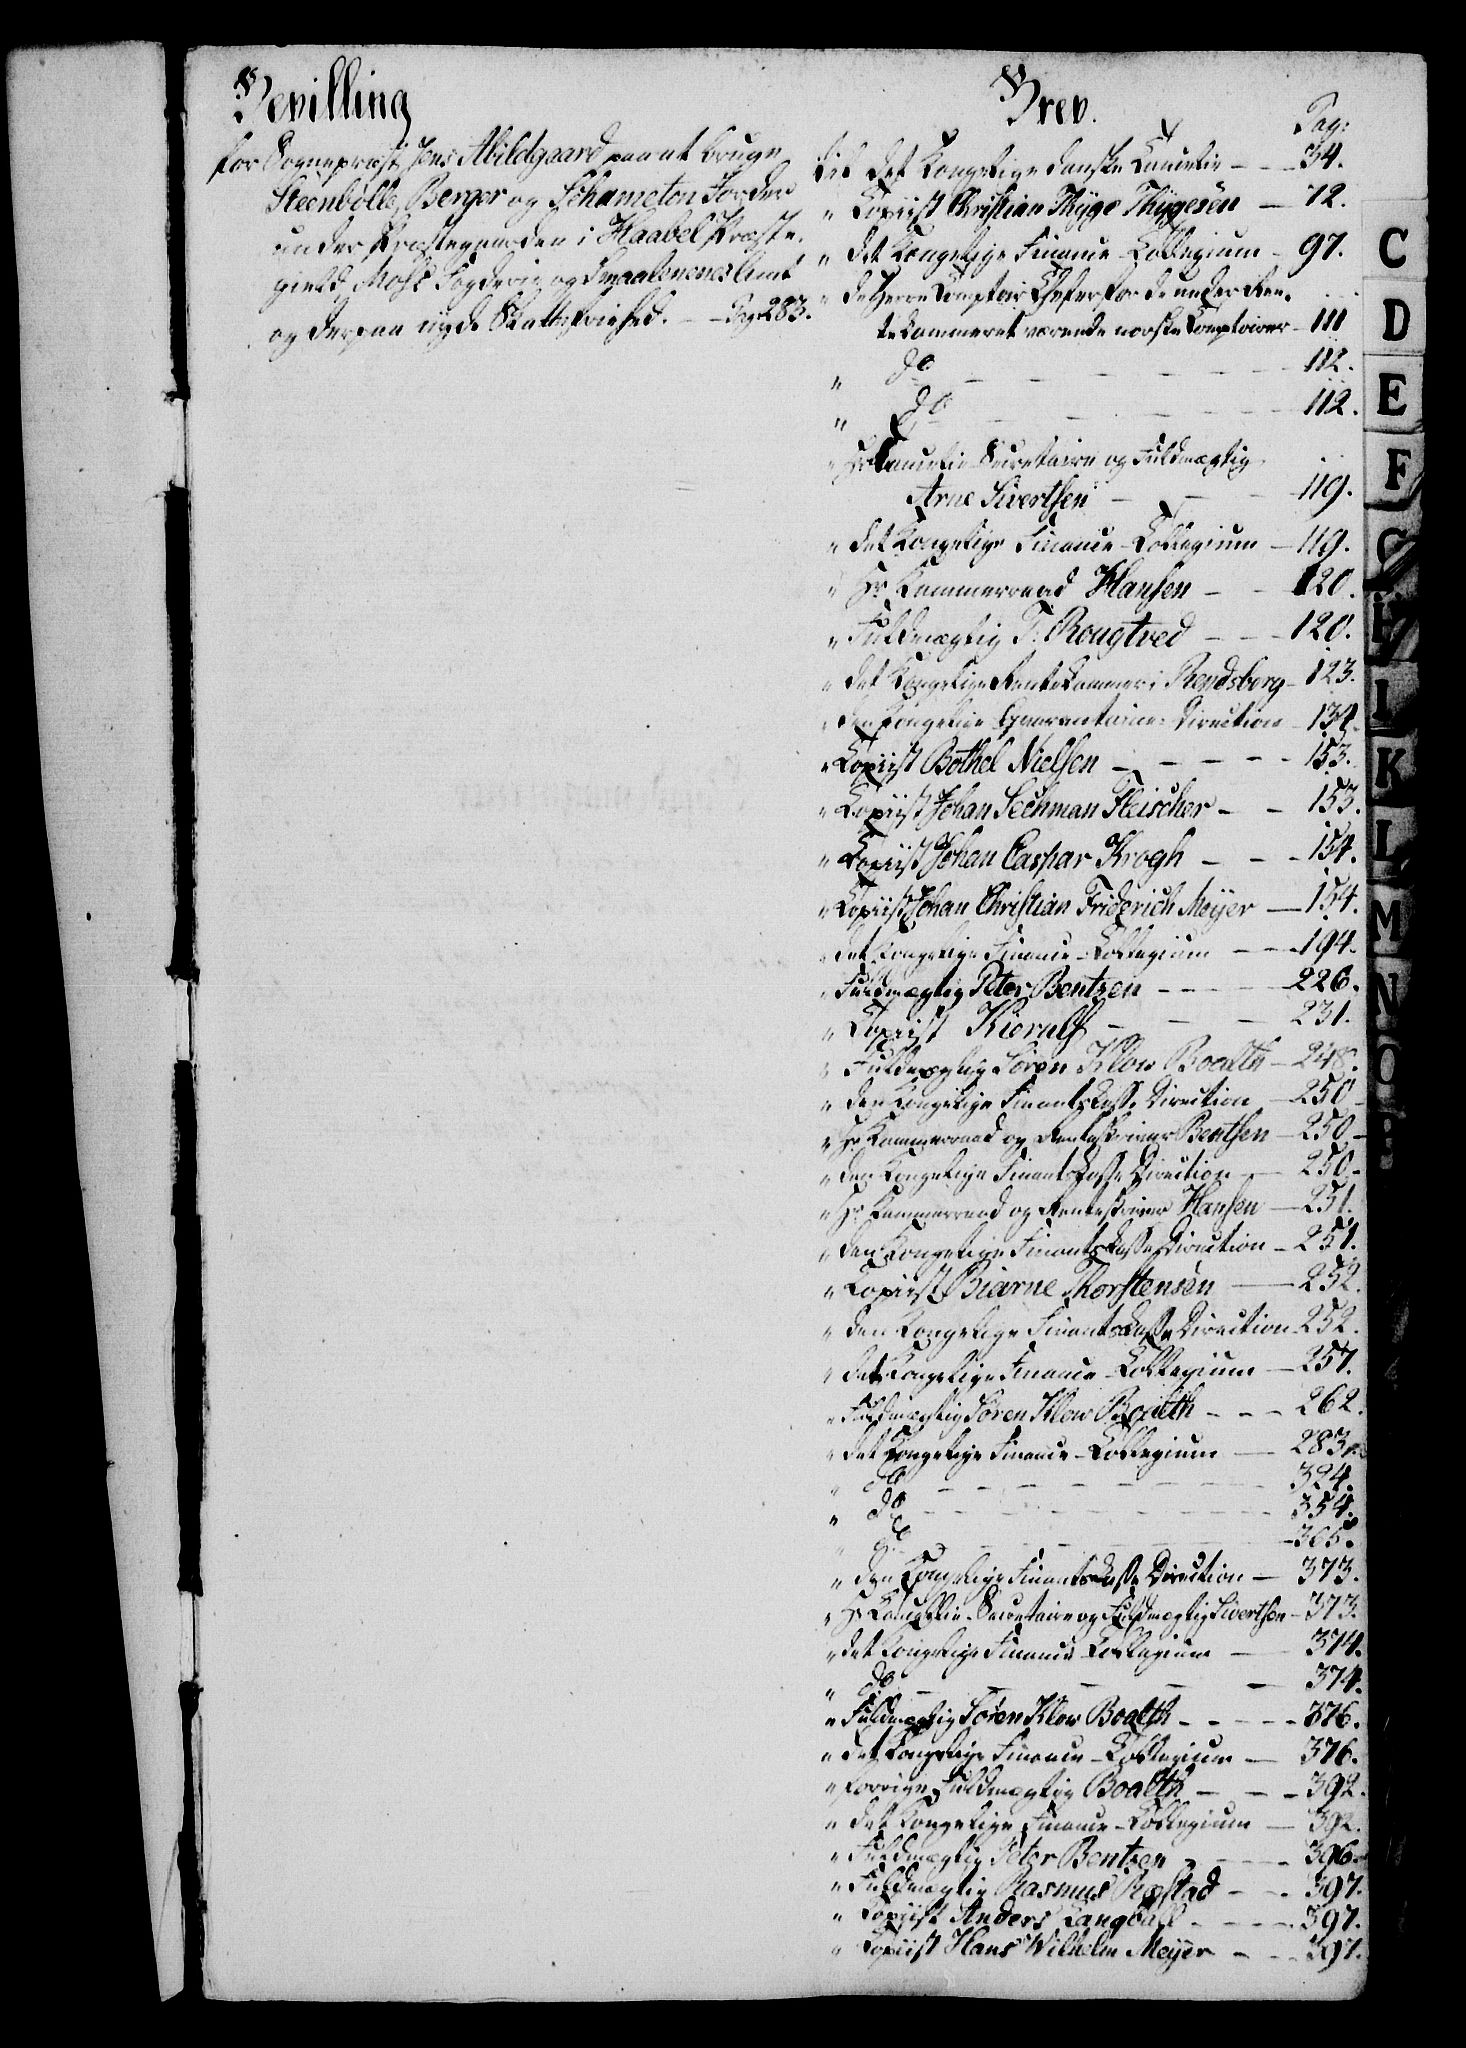 Bevilling
for Sognepræst Jens Abildgaard paa at bruge
Steenbølle, Berger og Schameton Jorder
under Præstegaarden i Haabel Præste-
gield, Mohs Fogderie og Smaalenenes Amt
og derpaa nyde Skattefriehed. — Pag: 283.
Brev.
Pag:
til det Kongelige danske Cancelie — 34.
" Copiist Christian Thyge Thygesen — 72.
" det Kongelige Finance-Collegium — 97.
" de Herrer Comptoir Chefer for de under Ren-
tekammeret værende norske Comptoirer — 111
" do — 112.
" do — 112.
" Hr Cancelie-Secretaire og Fuldmægtig
Arne Sivertsen — 119.
" det Kongelige Finance-Collegium — 119.
" Hr Kammerraad Hansen — 120.
" Fuldmægtig T. Rougtved — 120.
" det Kongelige Rentekammer i Rendsborg — 123.
" den Kongelige Quarantaine-Direction — 134.
" Copiist Bothel Nielsen — 153.
" Copiist Johan Sechman Fleischer — 153.
" Copiist Johan Caspar Krogh — 154.
" Copiist Johan Christian Friderich Meijer — 154.
" det Kongelige Finance-Collegium — 194.
" Fuldmægtig Peter Bentzen — 226.
" Copiist Kierulf — 231.
" Fuldmægtig Søren Klow Boalth — 248.
" den Kongelige Finantskasse Direction — 250
" Hr Kammerraad og Renteskriver Bentsen — 250
" den Kongelige Finantskasse Direction — 250
" Hr Kammerraad og Renteskriver Hansen — 251.
" den Kongelige Finantskasse Direction — 251.
" Copiist Biarne Thorstensen — 252.
" den Kongelige Finantskasse Direction 252.
" det Kongelige Finance-Collegium — 257.
" Fuldmægtig Søren Klow Boalth — 262.
" det Kongelige Finance-Collegium — 283.
" do — 324.
" do — 354.
" do — 365.
" den Kongelige Finantskasse Direction — 373.
" Hr Cancellie-Secretaire og Fuldmægtig Sivertsen — 373.
" det Kongelige Finance-Collegium — 374.
" do — 374.
" Fuldmægtig Søren Klow Boalth — 376.
" det Kongelige Finance-Collegium — 376.
" forrige Fuldmægtig Boalth — 392.
" det Kongelige Finance-Collegium — 392.
" Fuldmægtig Peter Bentzen — 396.
" Fuldmægtig Rasmus Røstad — 397.
" Copiist Anders — 397.
" Copiist Hans Wilhelm Meijer — 397.
C
D
E
F
G
H
I
K
L
M
N
O